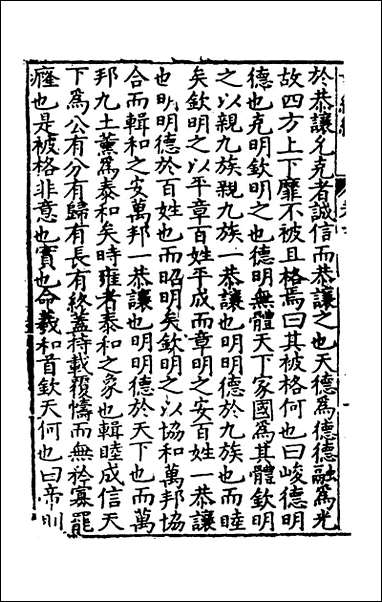 於恭讓允克者誠信而恭讓之也天德爲德德融爲光
故四方上下靡不被且格焉曰其被格何也曰峻德明
德也克明欽明之也德明無體天下家國爲其體欽明
之以親九族親九族一恭讓也明明德於九族也而睦
矣欽明之以平章百姓平成而章明之安百姓一恭讓
也明明德於百姓也而昭明矣欽明之以協和萬邦協
合而輯和之安萬邦一恭讓也明明德於天下也而萬
邦九土薰爲泰和矣時雍者泰和之象也輯睦成信天
下爲公有分有歸有長有終蓋持載覆幬而無矜寡罷
癃也是被格非意也實也命羲和首欽天何也曰帝則